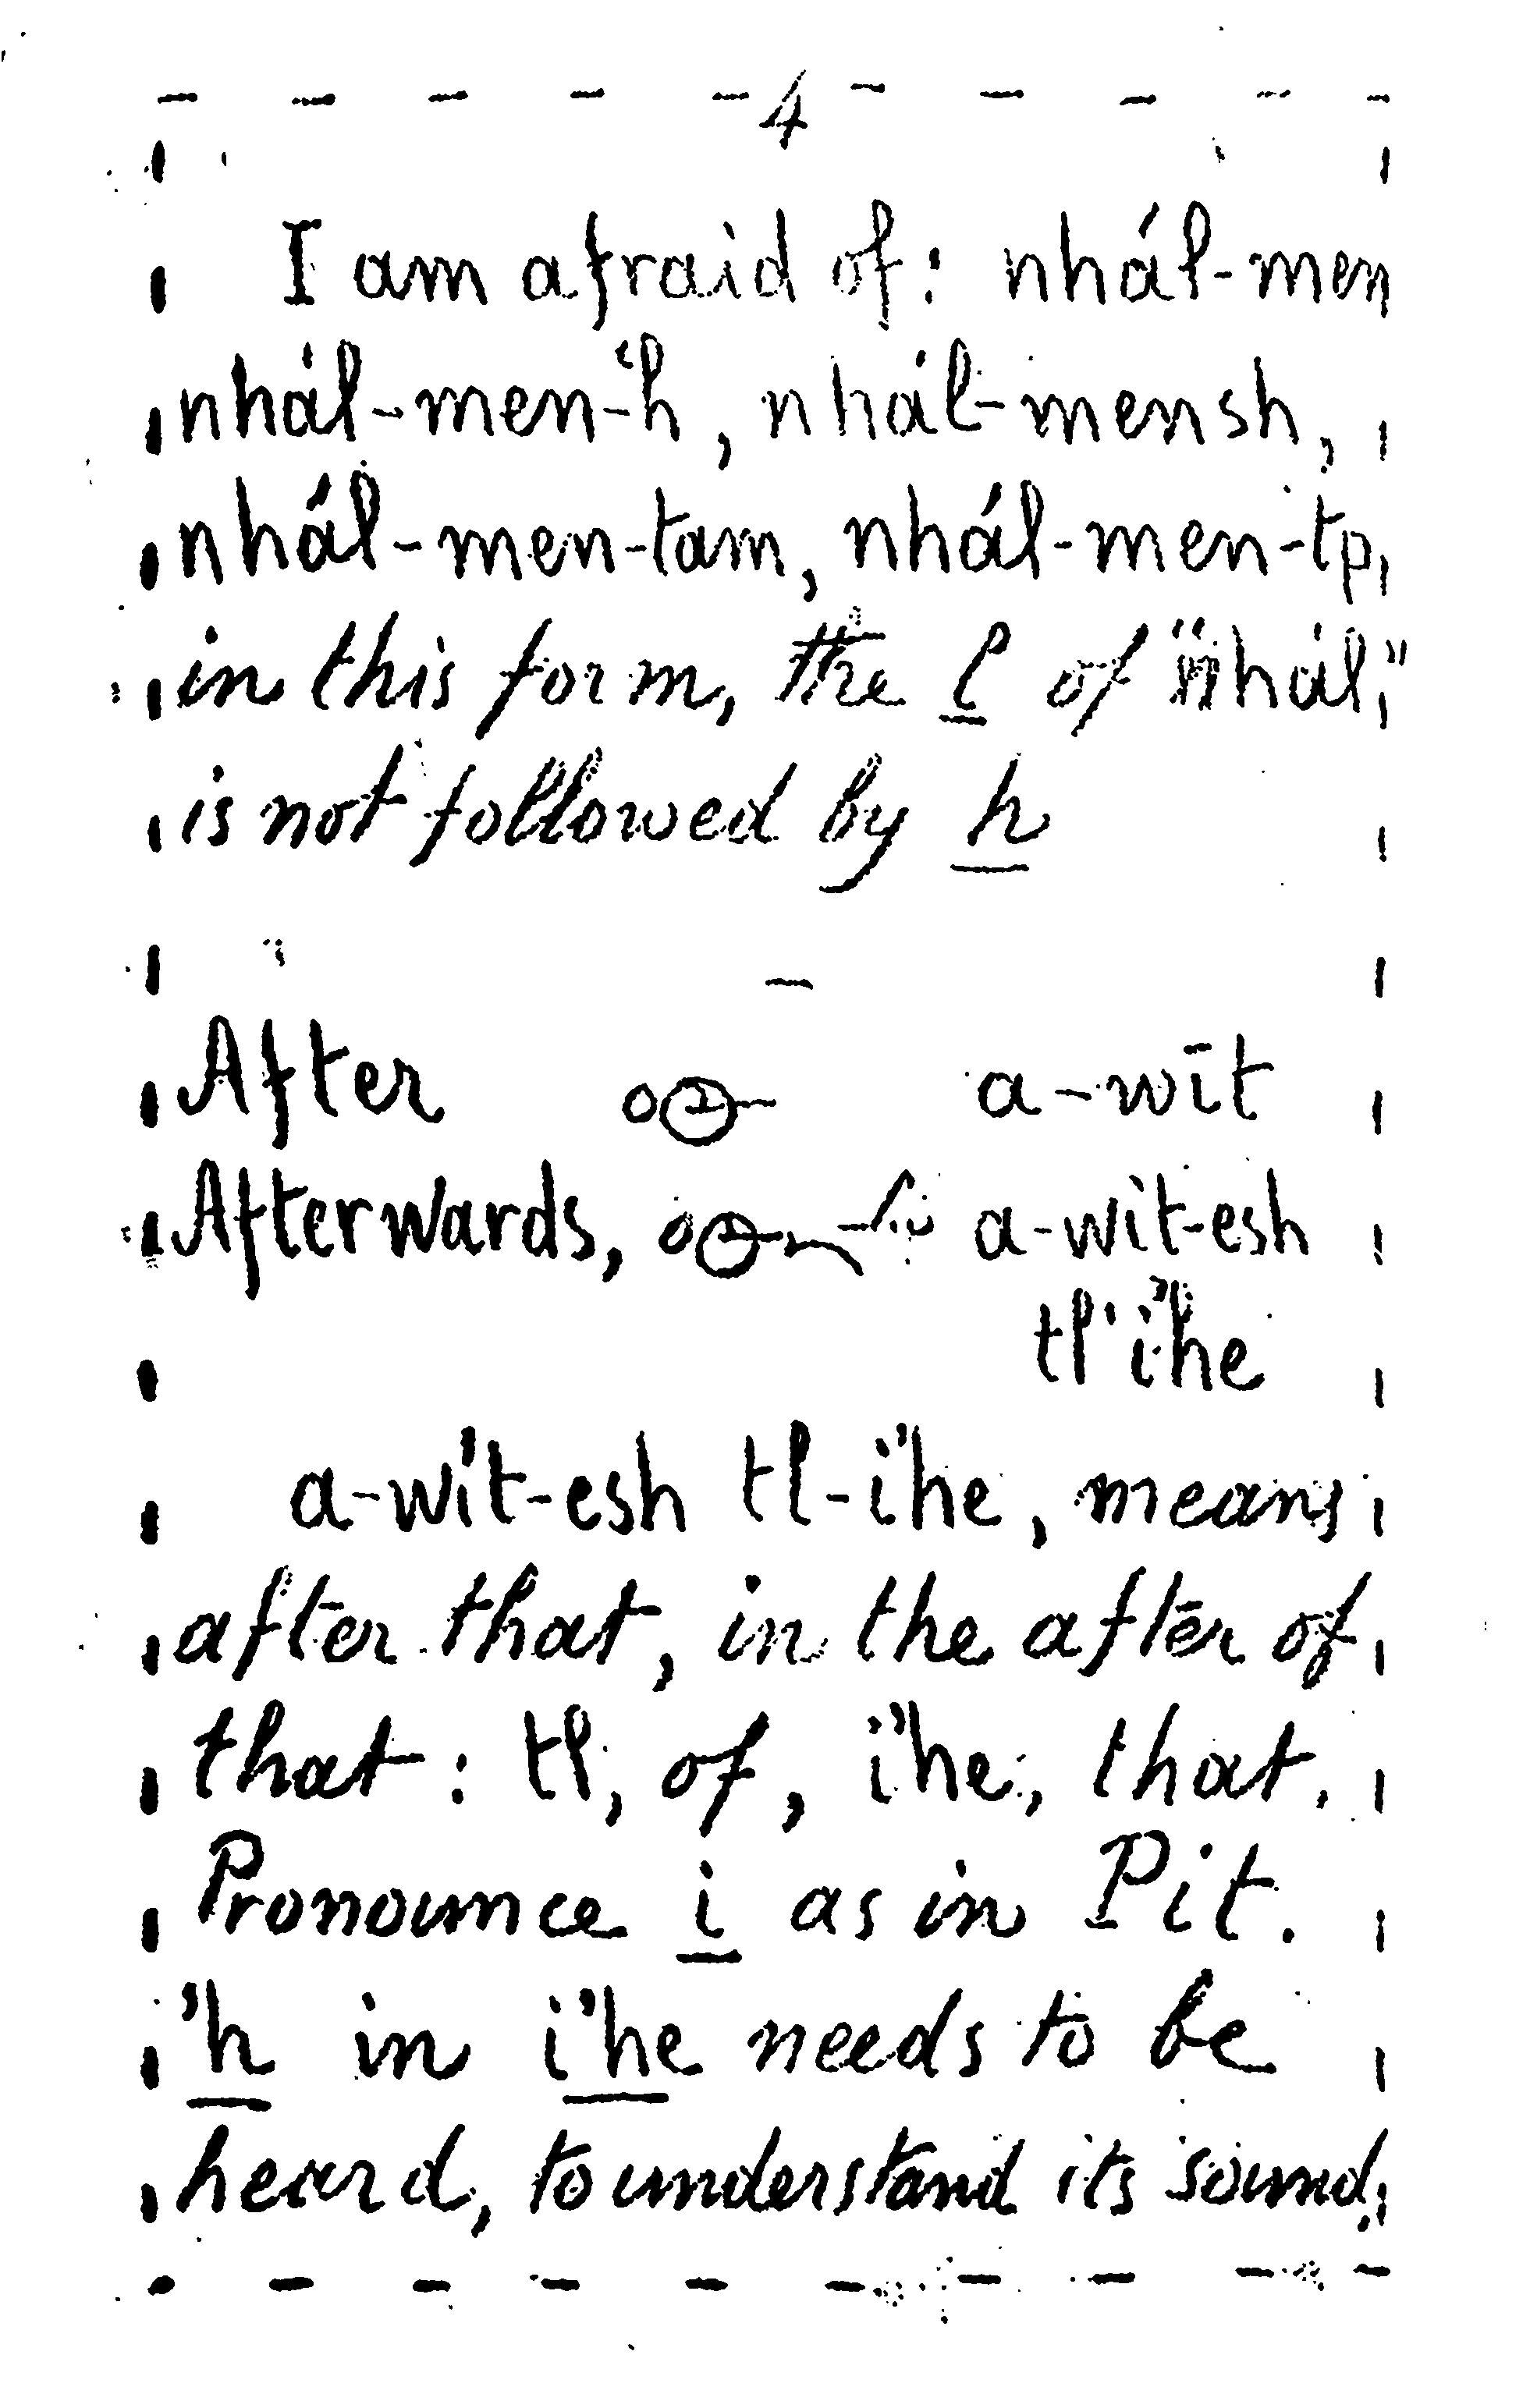 4
I am afraid of: nhál-men
nhál-men-'h, nhál-mensh,
nhál-men-tam, nhál-men-tp
in this form, the l of "nhál,"
is not followed by h
After a-wīt
Afterwards, a-wit-esh
tl'i'he
a-wít-esh tl-i'he, means
after that, in the after of
that: tl, of, i'he, that.
Pronounce i as in Pit.
'h in i'he needs to be
heard, to understand its sound,